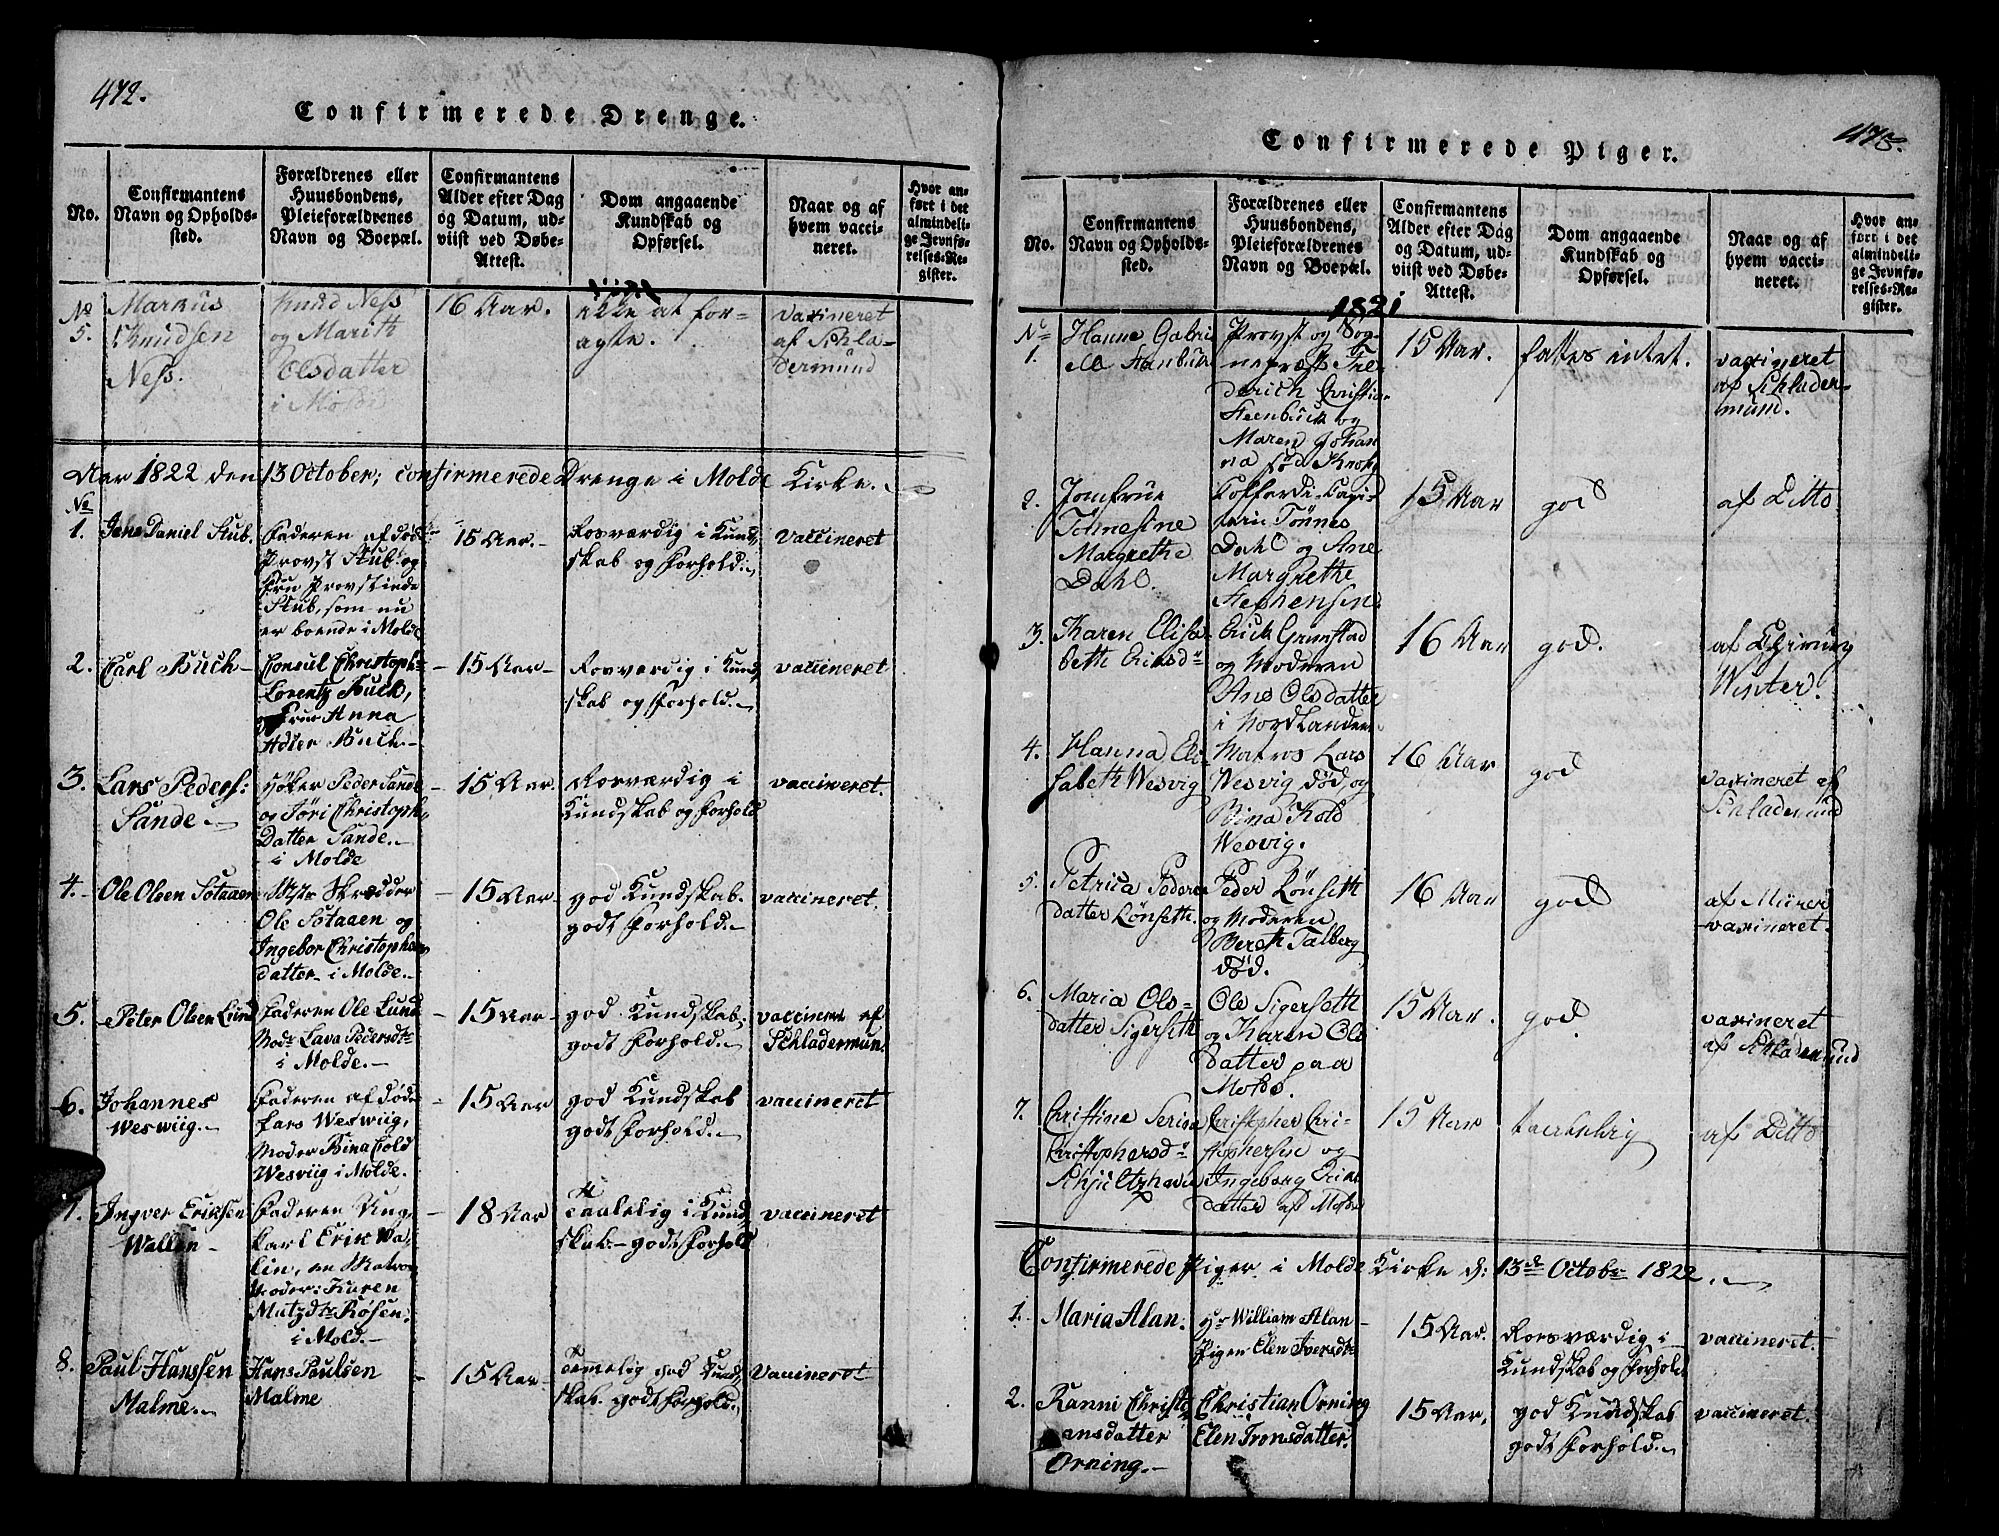 472.
Confirmerede Drenge.
No.
Confirmantens
Navn og Opholds-
sted.
Forældrenes eller
Huusbondens,
Pleieforældrenes
Navn og Boepæl.
Confirmantens
Alder efter Dag
og Datum, ud-
viist ved Døbe-
Attest.
Dom angaaende
Kundskab og
Opførsel.
Naar og af
hvem vacci-
neret.
Hvor an-
ført i det
almindeli-
ge Jevnfø-
relses-Re-
gister.
No
5.
Markus
Knudsen
Ness.
Knud Ness
og Marith
Olsdatter
i Molde
16 Aar.
ikke at for-
agte.
vaxineret
af Schla-
dermund
Aar 1822 den 13 October; confirmerede Drenge i Molde Kirke.
No
1.
Jens Daniel Stub.
Faderen afdød
Provst Stub og
Fru Provstinde
Stub, som nu
er boende i Molde
15 Aar.-
Rosværdig i Kund-
skab og Forhold.
vaccineret
2.
Carl Buch-
Consul Christoph-
Lorentz Buch,
og Frue Anna
Adler Buch.-
15 Aar-
Rosværdig i Kund-
skab og Forhold.-
vaccineret
3.
Lars Peders:
Sande.-
Høker Peder Sande
og Jøri Christoph-
Datter Sande.-
i Molde
15 Aar.
Rosværdig i
Kundskab og Forhold
vaccineret.
4.
Ole Olsen Sotaaen
Mstr Skrædder
Ole Sotaaen og
Ingebor Christophers
datter i Molde.-
15 Aar-
god Kundskab.
godt Forhold.-
vaccineret.
5.
Peter Olsen Lund
Faderen Ole Lund
Modr Lava Pedersdtr
i Molde.-
15 Aar-
god Kundskab,
godt Forhold.-
vaccinere af
Schladermun.
6.
Johannes
Weswiig.
Faderen afdøde
Lars Weswiig,
Moder Bina Cold
Wesviig i Molde.
15 Aar
god Kundskab
godt Forhold.-
vaccineret
7.
Ingver Eriksen
Wallin-
Faderen Ung-
karl Erik Wa-
lin, en Matros
Moder: Karen
Matzdtr Røsen,
i Molde.-
18 Aar
Taalelig i Kund-
skab.- godt Forhold
vaccineret
8.
Paul Hanssen
Malme.-
Hans Paulsen
Malme
15 Aar-
Temelig god Kund-
skab. godt Forhold.
Vaccineret
475.
Confirmerede Piger.
No.
Confirmantens
Navn og Opholds-
sted.
Forældrenes eller
Huusbondens,
Pleieforældrenes
Navn og Boepæl.
Confirmantens
Alder efter Dag
og Datum, ud-
viist ved Døbe-
Attest.
Dom angaaende
Kundskab og
Opførsel.
Naar og af
hvem vacci-
neret.
Hvor an-
ført i det
almindeli-
ge Jevnfø-
relses-Re-
gister.
1821
No
1.
Hanne Gabri
elle
Provst og Sog-
nepræst Fre-
derich Christian
Steenbuch og
Maren Johan
na fød Krog
15 Aar.
fattes intet.
vaxineret
af Schlader-
mund.
2.
Jomfrue
Tønnesine
Margrethe
Dahl.
Cofferdi-Capi-
tain Tønnes
Dahl og Ane
Margrethe
Stephensen
15 Aar
god
af Ditto
3.
Karen Elisa-
beth Eriksd
Erick Grimstad
og Moderen
Ane Olsdatter
i Nordlanden
16 Aar
god.
af Chirurg
Winter.
4.
Hanna Eli
sabeth Wesvig
Matros Lars
Wesvig død og
Bina Kold
Wesvig.
16 Aar
god
vaxineret af
Schladermund
5.
Petrica Peders
datter Lønseth.
Peder Lønseth
og Moderen
Bereth Talberg
død.
16 Aar
god
af Mürer
vaxineret.
6.
Maria Ols-
datter Sigerseth
Ole Sigerseth
og Karen Ols
datter paa
Molde.
15 Aar.
god
vaxineret
af Schladermund
7.
Christine Serina
Christophersd
Christopher Chri-
stophersen og
Ingeborg Eriks
datter af Molde
15 Aar
taalelig
af Ditto
Confirmerede Piger i Molde Kirke d: 13de Octobr 1822.
1.
Maria Alan.
Hr William Alan-
Pigen Elen Iversdtr
15 Aar.
Rosværdig i
Kundskab og Forhold
vaccineret.
2.
Ranni Christi
ansdatter
Orning.-
Christian Orning
Elen Tronsdatter.
15 Aar,
god Kundskab
godt Forhold.-
vaccineret.